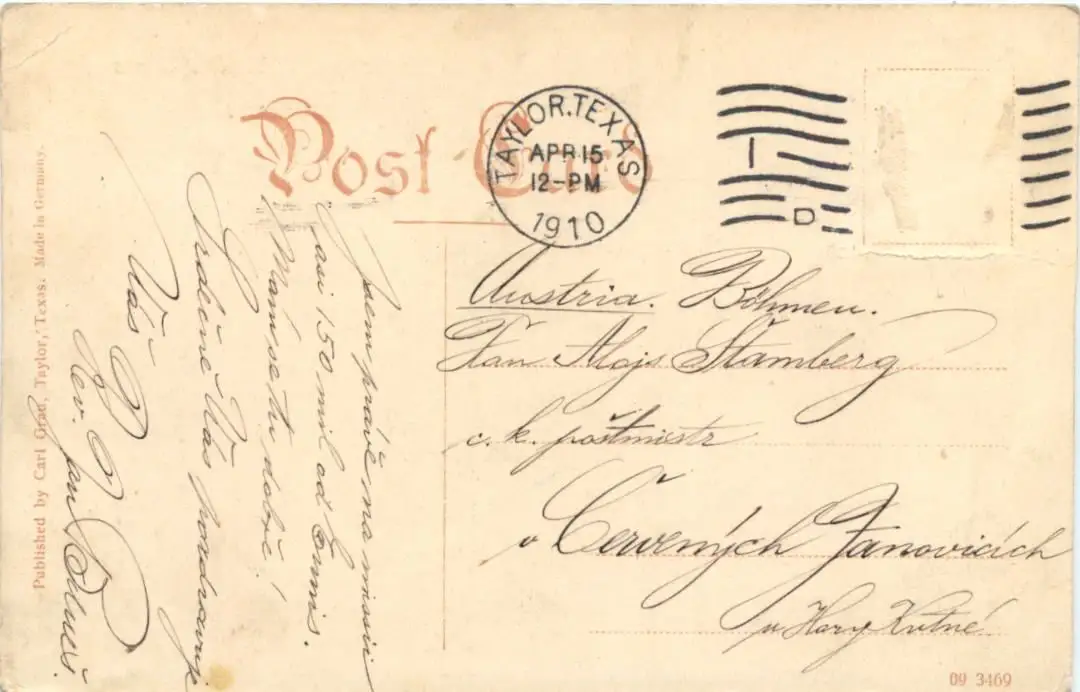 Post Card
TAYLOR, TEXAS
APR 15
12-PM
1910
1
D
Published by Carl Grau, Taylor, Texas. Made in Germany.
Jsem právě na missii
asi 150 mil od Ennis.
Mám se tu dobře!
Srdečně Vás pozdravuje
Váš
Rev. Jan
Austria. Böhmen.
Pan Alojs Štamberg
c. k. poštmistr
v Červených Janovicích
u Hory Kutné
09 3469